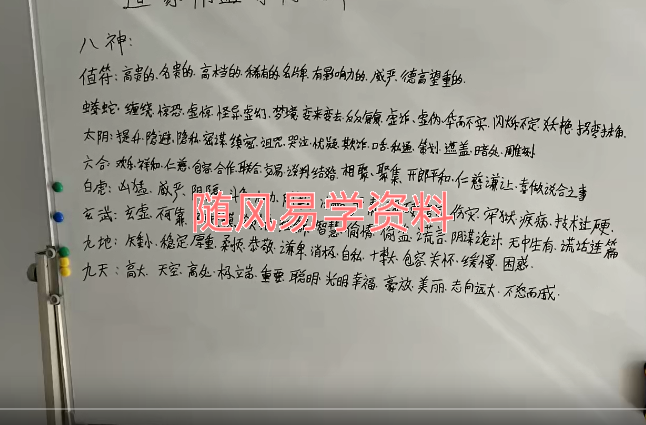 八神:
值符: 高贵的、名贵的、高档的、稀有的、名牌、有影响力的、威严、德高望重的.
螣蛇: 缠绕、惊恐、虚惊、怪异、虚幻、梦境、变来变去、反反复复、虚诈、虚伪、华而不实、闪烁不定、妖艳、拐弯抹角.
太阴: 提升、隐避、隐私、密谋、缜密、诅咒、哭泣、忧疑、欺诈、口舌、私通、策划、遮盖、暗处、雕刻
六合: 欢乐、祥和、仁慈、包容、合作、联合、交易、谈判、结婚、相聚、聚集、开朗平和、仁慈谦让、喜做说合之事
白虎: 凶猛、威严、阴隔 伤灾、牢狱、疾病、技术过硬
玄武: 玄虚、智慧、偷情、偷盗、谎言、阴谋诡计、无中生有、谎话连篇
九地: 矮小、稳定、厚重、柔顺、恭敬、谦卑、消极、自私、包容、关怀、缓慢、困惑.
九天: 高大、天空、高处、极端、重要、聪明、光明、幸福、豪放、美丽、志向远大、不怒而威.
随风易学资料